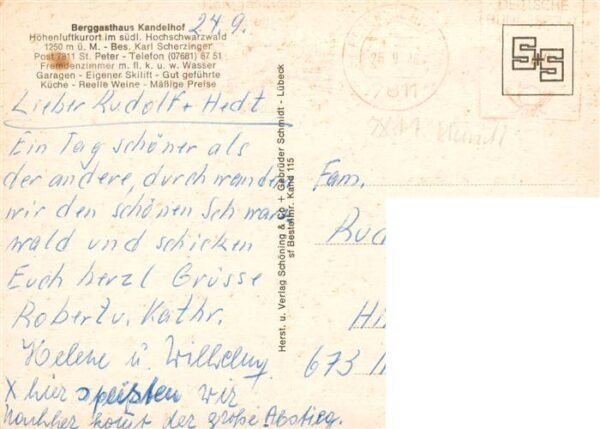 Berggasthaus Kandelhof
Höhenluftkurort im südl. Hochschwarzwald
1250 m ü. M. - Bes. Karl Scherzinger
Post 7811 St. Peter - Telefon (07681) 67 51
Fremdenzimmer m. fl. k. u. w. Wasser
Garagen - Eigener Skilift - Gut geführte
Küche - Reelle Weine - Mäßige Preise
24.9.
Lieber Rudolf + Hedt
Ein Tag schöner als
der andere, durchwandern
wir den schönen Schwarz
wald und schicken
Euch herzl Grüsse
Robert u. Kathr.
Helene u. Willhelm
X hier speißten wir
nachher kommt der große Abstieg.
Herst. u. Verlag Schöning & Co + Gebrüder Schmidt - Lübeck
sf Bestellnr. Kand 115
DEUTSCHE
25.9.
7811
S+S
Fam.
Rud
Hi
673